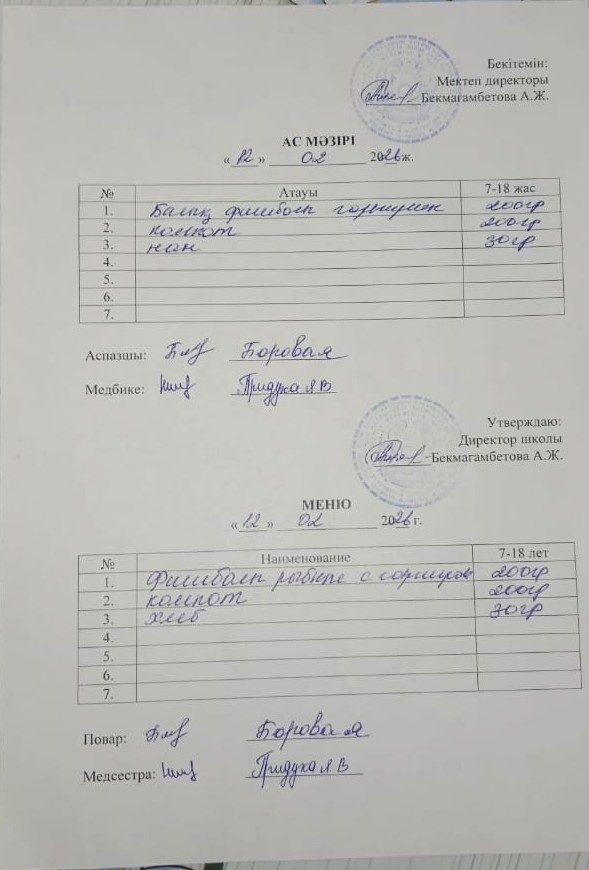 Бекітемін:
Мектеп директоры
Бекмагамбетова А.Ж.
АС МӘЗІРІ
« 12 » 02 2026 ж.
№ Атауы 7-18 жас
1. Балық фишболы гарнирмен 200гр
2. компот 200гр
3. нан 30гр
4.
5.
6.
7.
Аспазшы: Боровая
Медбике: Придуха Л В
Утверждаю:
Директор школы
Бекмагамбетова А.Ж.
МЕНЮ
« 12 » 02 2026 г.
№ Наименование 7-18 лет
1. Фишболы рыбные с гарниром 200гр
2. компот 200гр
3. хлеб 30гр
4.
5.
6.
7.
Повар: Боровая
Медсестра: Придуха Л В